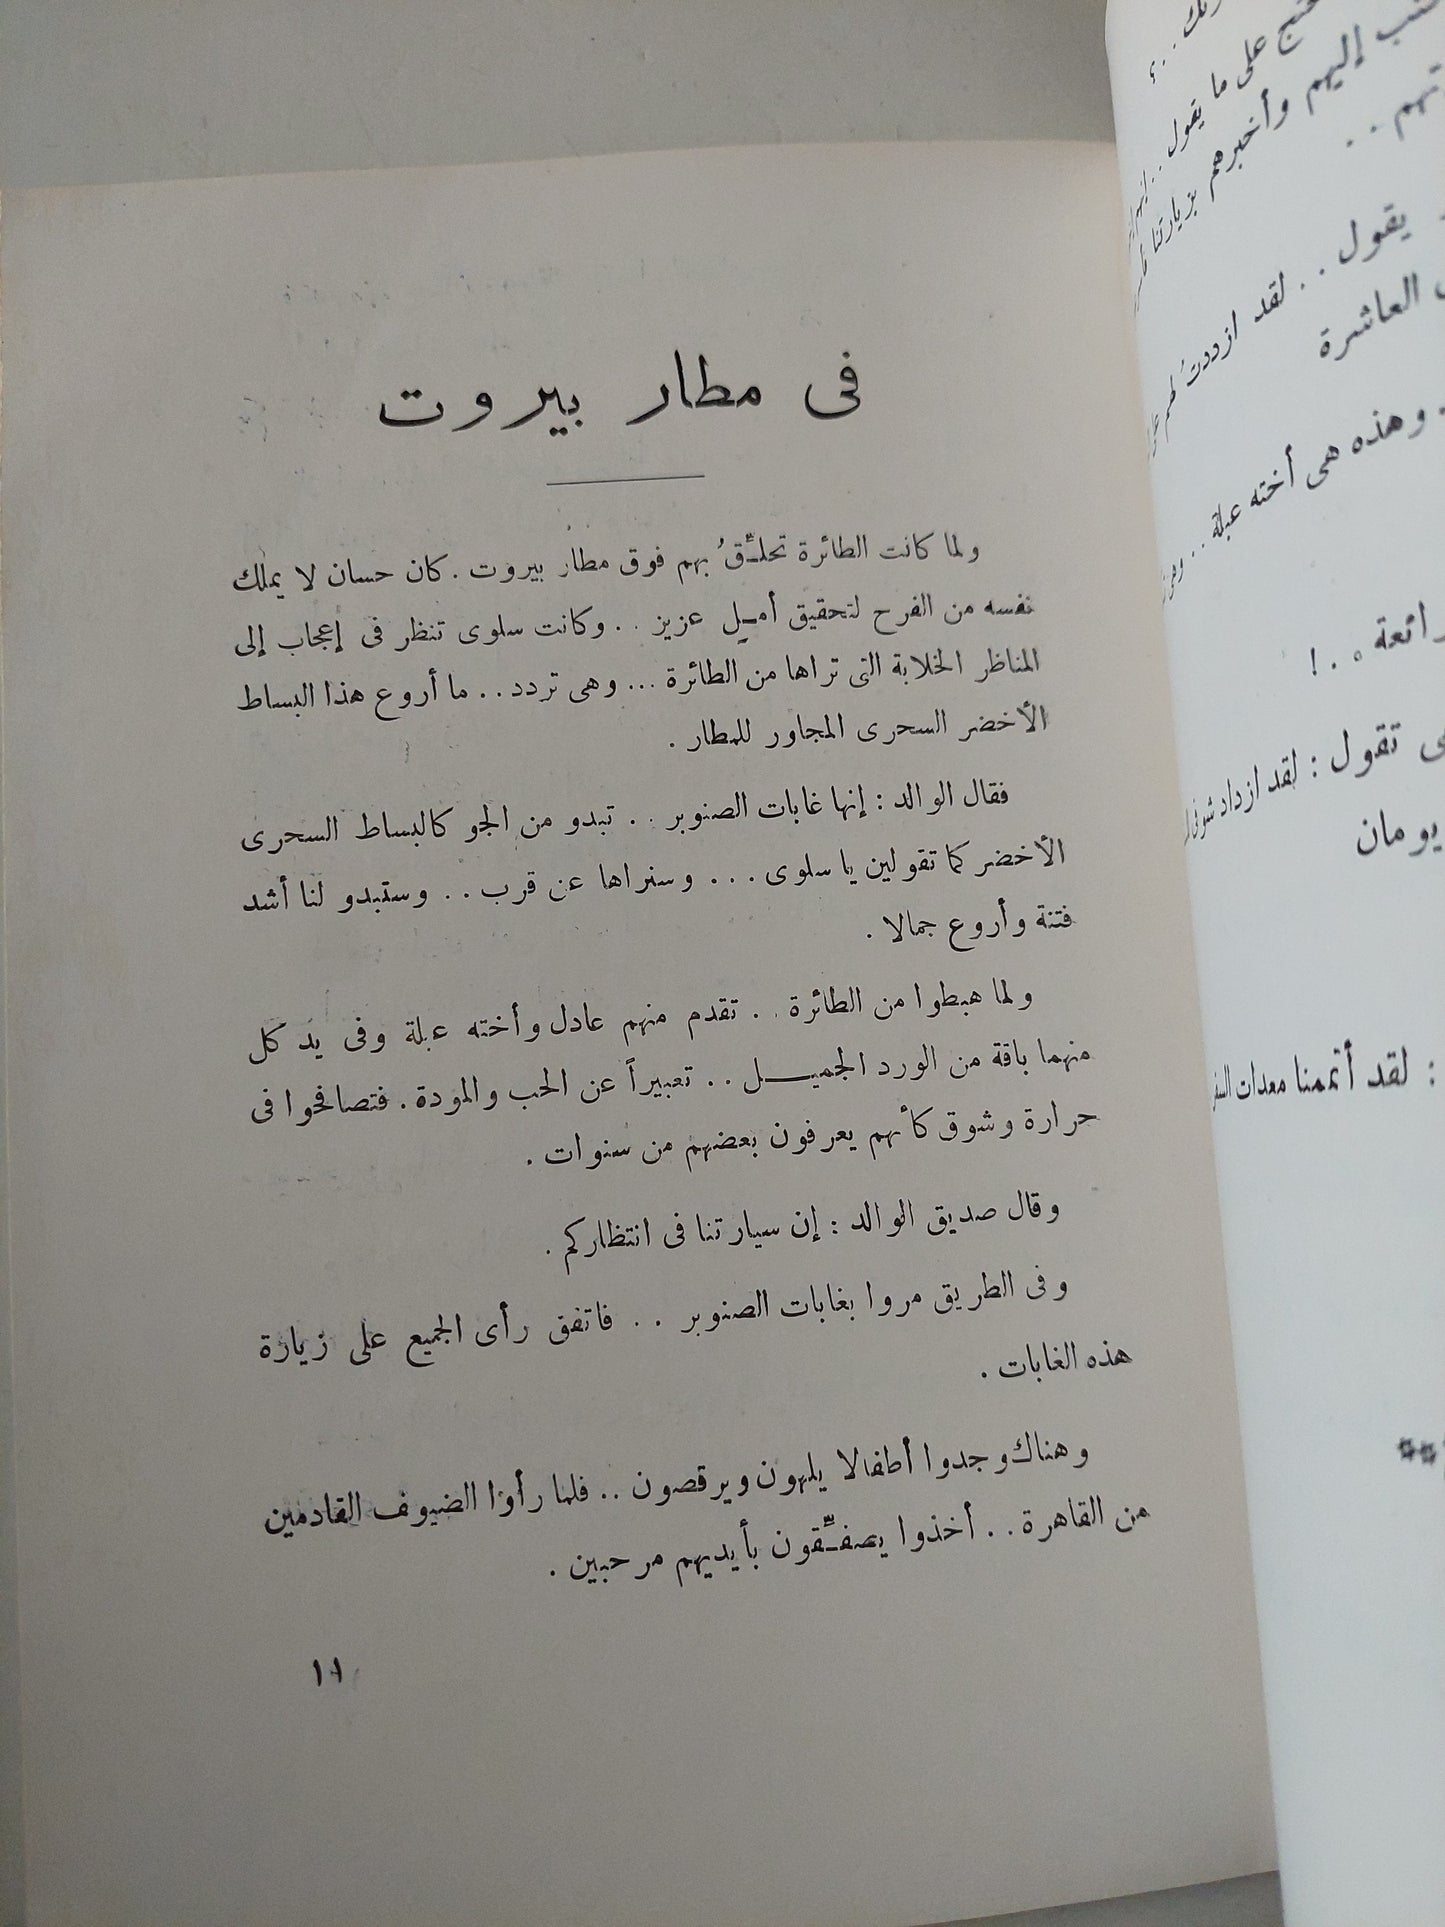 فى مطار بيروت
ولما كانت الطائرة تحلِّقُ بهم فوق مطار بيروت . كان حسان لا يملك
نفسه من الفرح لتحقيق أمـل عزيز . . وكانت سلوى تنظر فى إعجاب إلى
المناظر الخلابة التى تراها من الطائرة ... وهى تردد . . ما أروع هذا البساط
الأخضر السحرى المجاور للمطار .
فقال الوالد : إنها غابات الصنوبر . . تبدو من الجو كالبساط السحرى
الأخضر كما تقولين يا سلوى . . . وسنراها عن قرب . . وستبدو لنا أشد
فتنة وأروع جمالا .
ولما هبطوا من الطائرة . . تقدم منهم عادل وأخته عبلة وفى يد كل
منهما باقة من الورد الجميـــل . . تعبيراً عن الحب والمودة . فتصافحوا فى
حرارة وشوق كأنهم يعرفون بعضهم من سنوات .
وقال صديق الوالد : إن سيارتنا فى انتظاركم .
وفى الطريق مروا بغابات الصنوبر . . فاتفق رأى الجميع على زيارة
هذه الغابات .
وهناك وجدوا أطفالا يلهون ويرقصون . . فلما رأوا الضيوف القادمين
من القاهرة . . أخذوا يصفِّقون بأيديهم مرحبين .
١١
على ما يقول . .
إليهم وأخبرهم بزيارتنا
يقول . . لقد ازددتُ
العاشرة
وهذه هى أخته عبلة . .
رائعة . . !
تقول : لقد ازداد
يومان
: لقد أتممنا معدات السفر
**